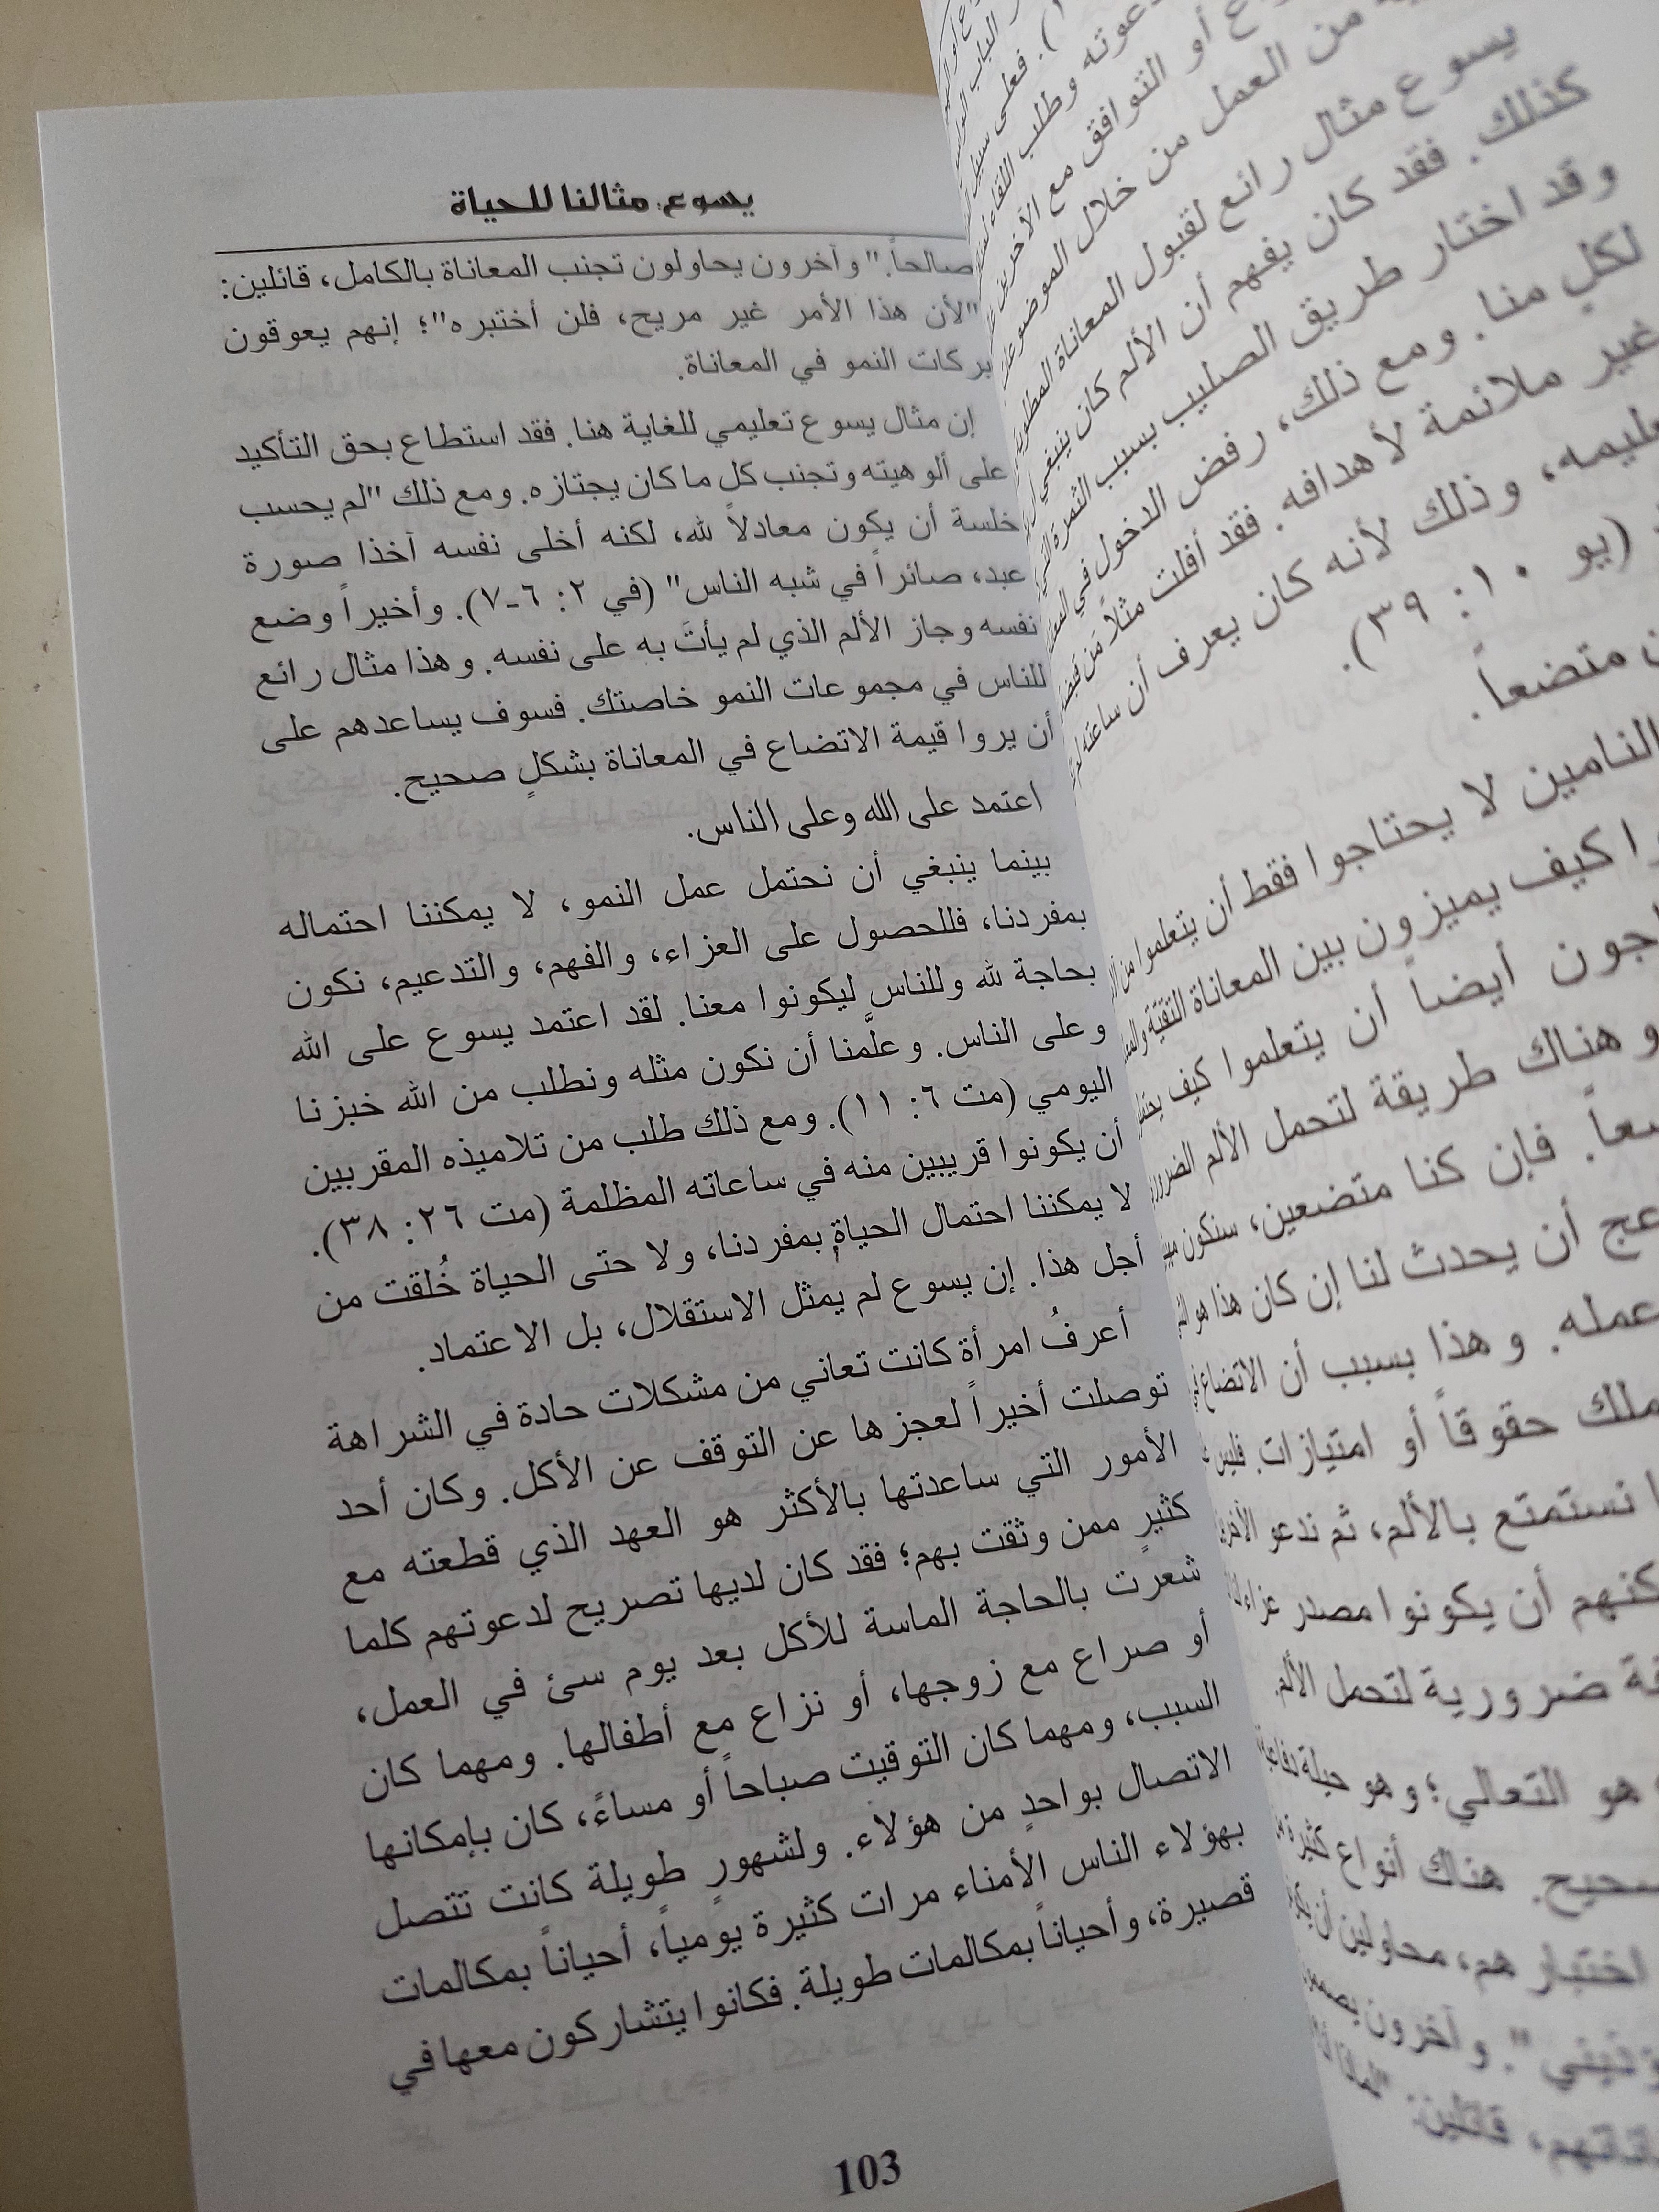 يسوع: مثالنا للحياة
صالحاً." وآخرون يحاولون تجنب المعاناة بالكامل، قائلين:
"لأن هذا الأمر غير مريح، فلن أختبره"؛ إنهم يعوقون
بركات النمو في المعاناة.
إن مثال يسوع تعليمي للغاية هنا. فقد استطاع بحق التأكيد
على ألوهيته وتجنب كل ما كان يجتازه. ومع ذلك "لم يحسب
خلسة أن يكون معادلاً لله، لكنه أخلى نفسه آخذا صورة
عبد، صائراً في شبه الناس" (في ٢: ٦-٧). وأخيراً وضع
نفسه وجاز الألم الذي لم يأتَ به على نفسه. وهذا مثال رائع
للناس في مجموعات النمو خاصتك. فسوف يساعدهم على
أن يروا قيمة الاتضاع في المعاناة بشكلٍ صحيح.
اعتمد على الله وعلى الناس.
بينما ينبغي أن نحتمل عمل النمو، لا يمكننا احتماله
بمفردنا، فللحصول على العزاء، والفهم، والتدعيم، نكون
بحاجة لله وللناس ليكونوا معنا. لقد اعتمد يسوع على الله
وعلى الناس. وعلَّمنا أن نكون مثله ونطلب من الله خبزنا
اليومي (مت ٦: ١١). ومع ذلك طلب من تلاميذه المقربين
أن يكونوا قريبين منه في ساعاته المظلمة (مت ٢٦: ٣٨).
لا يمكننا احتمال الحياة بمفردنا، ولا حتى الحياة خُلقت من
أجل هذا. إن يسوع لم يمثل الاستقلال، بل الاعتماد.
أعرفُ امرأة كانت تعاني من مشكلات حادة في الشراهة
توصلت أخيراً لعجزها عن التوقف عن الأكل. وكان أحد
الأمور التي ساعدتها بالأكثر هو العهد الذي قطعته مع
كثيرٍ ممن وثقت بهم؛ فقد كان لديها تصريح لدعوتهم كلما
شعرت بالحاجة الماسة للأكل بعد يوم سئ في العمل،
أو صراع مع زوجها، أو نزاع مع أطفالها. ومهما كان
السبب، ومهما كان التوقيت صباحاً أو مساءً، كان بإمكانها
الاتصال بواحدٍ من هؤلاء. ولشهورٍ طويلة كانت تتصل
بهؤلاء الناس الأمناء مرات كثيرة يومياً، أحياناً بمكالمات
قصيرة، وأحياناً بمكالمات طويلة. فكانوا يتشاركون معها في
103
من العمل من خلال
يسوع مثال رائع لقبول المعاناة
كذلك. فقد كان يفهم أن الألم كان ينبغي
وقد اختار طريق الصليب بسبب الثمرة
لكلٍ منا. ومع ذلك، رفض الدخول في
غير ملائمة لأهدافه. فقد أفلت مثلاً من
وذلك لأنه كان يعرف أن ساعته
(يو ١٠: ٣٩).
متضعاً.
النامين لا يحتاجوا فقط أن يتعلموا من
كيف يميزون بين المعاناة النقية
أيضاً أن يتعلموا كيف
وهناك طريقة لتحمل الألم
فإن كنا متضعين، سنكون
أن يحدث لنا إن كان هذا هو
عمله. وهذا بسبب أن الاتضاع
حقوقاً أو امتيازات. فليس
نستمتع بالألم، ثم ندعو
أن يكونوا مصدر عزاء
ضرورية لتحمل الألم.
هو التعالي؛ وهو حيلة
هناك أنواع كثيرة
محاولين أن
وآخرون
قائلين: "لماذا